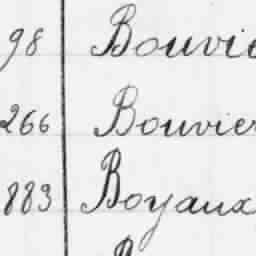 98 Bouvie
266 Bouvier
883 Boyaux